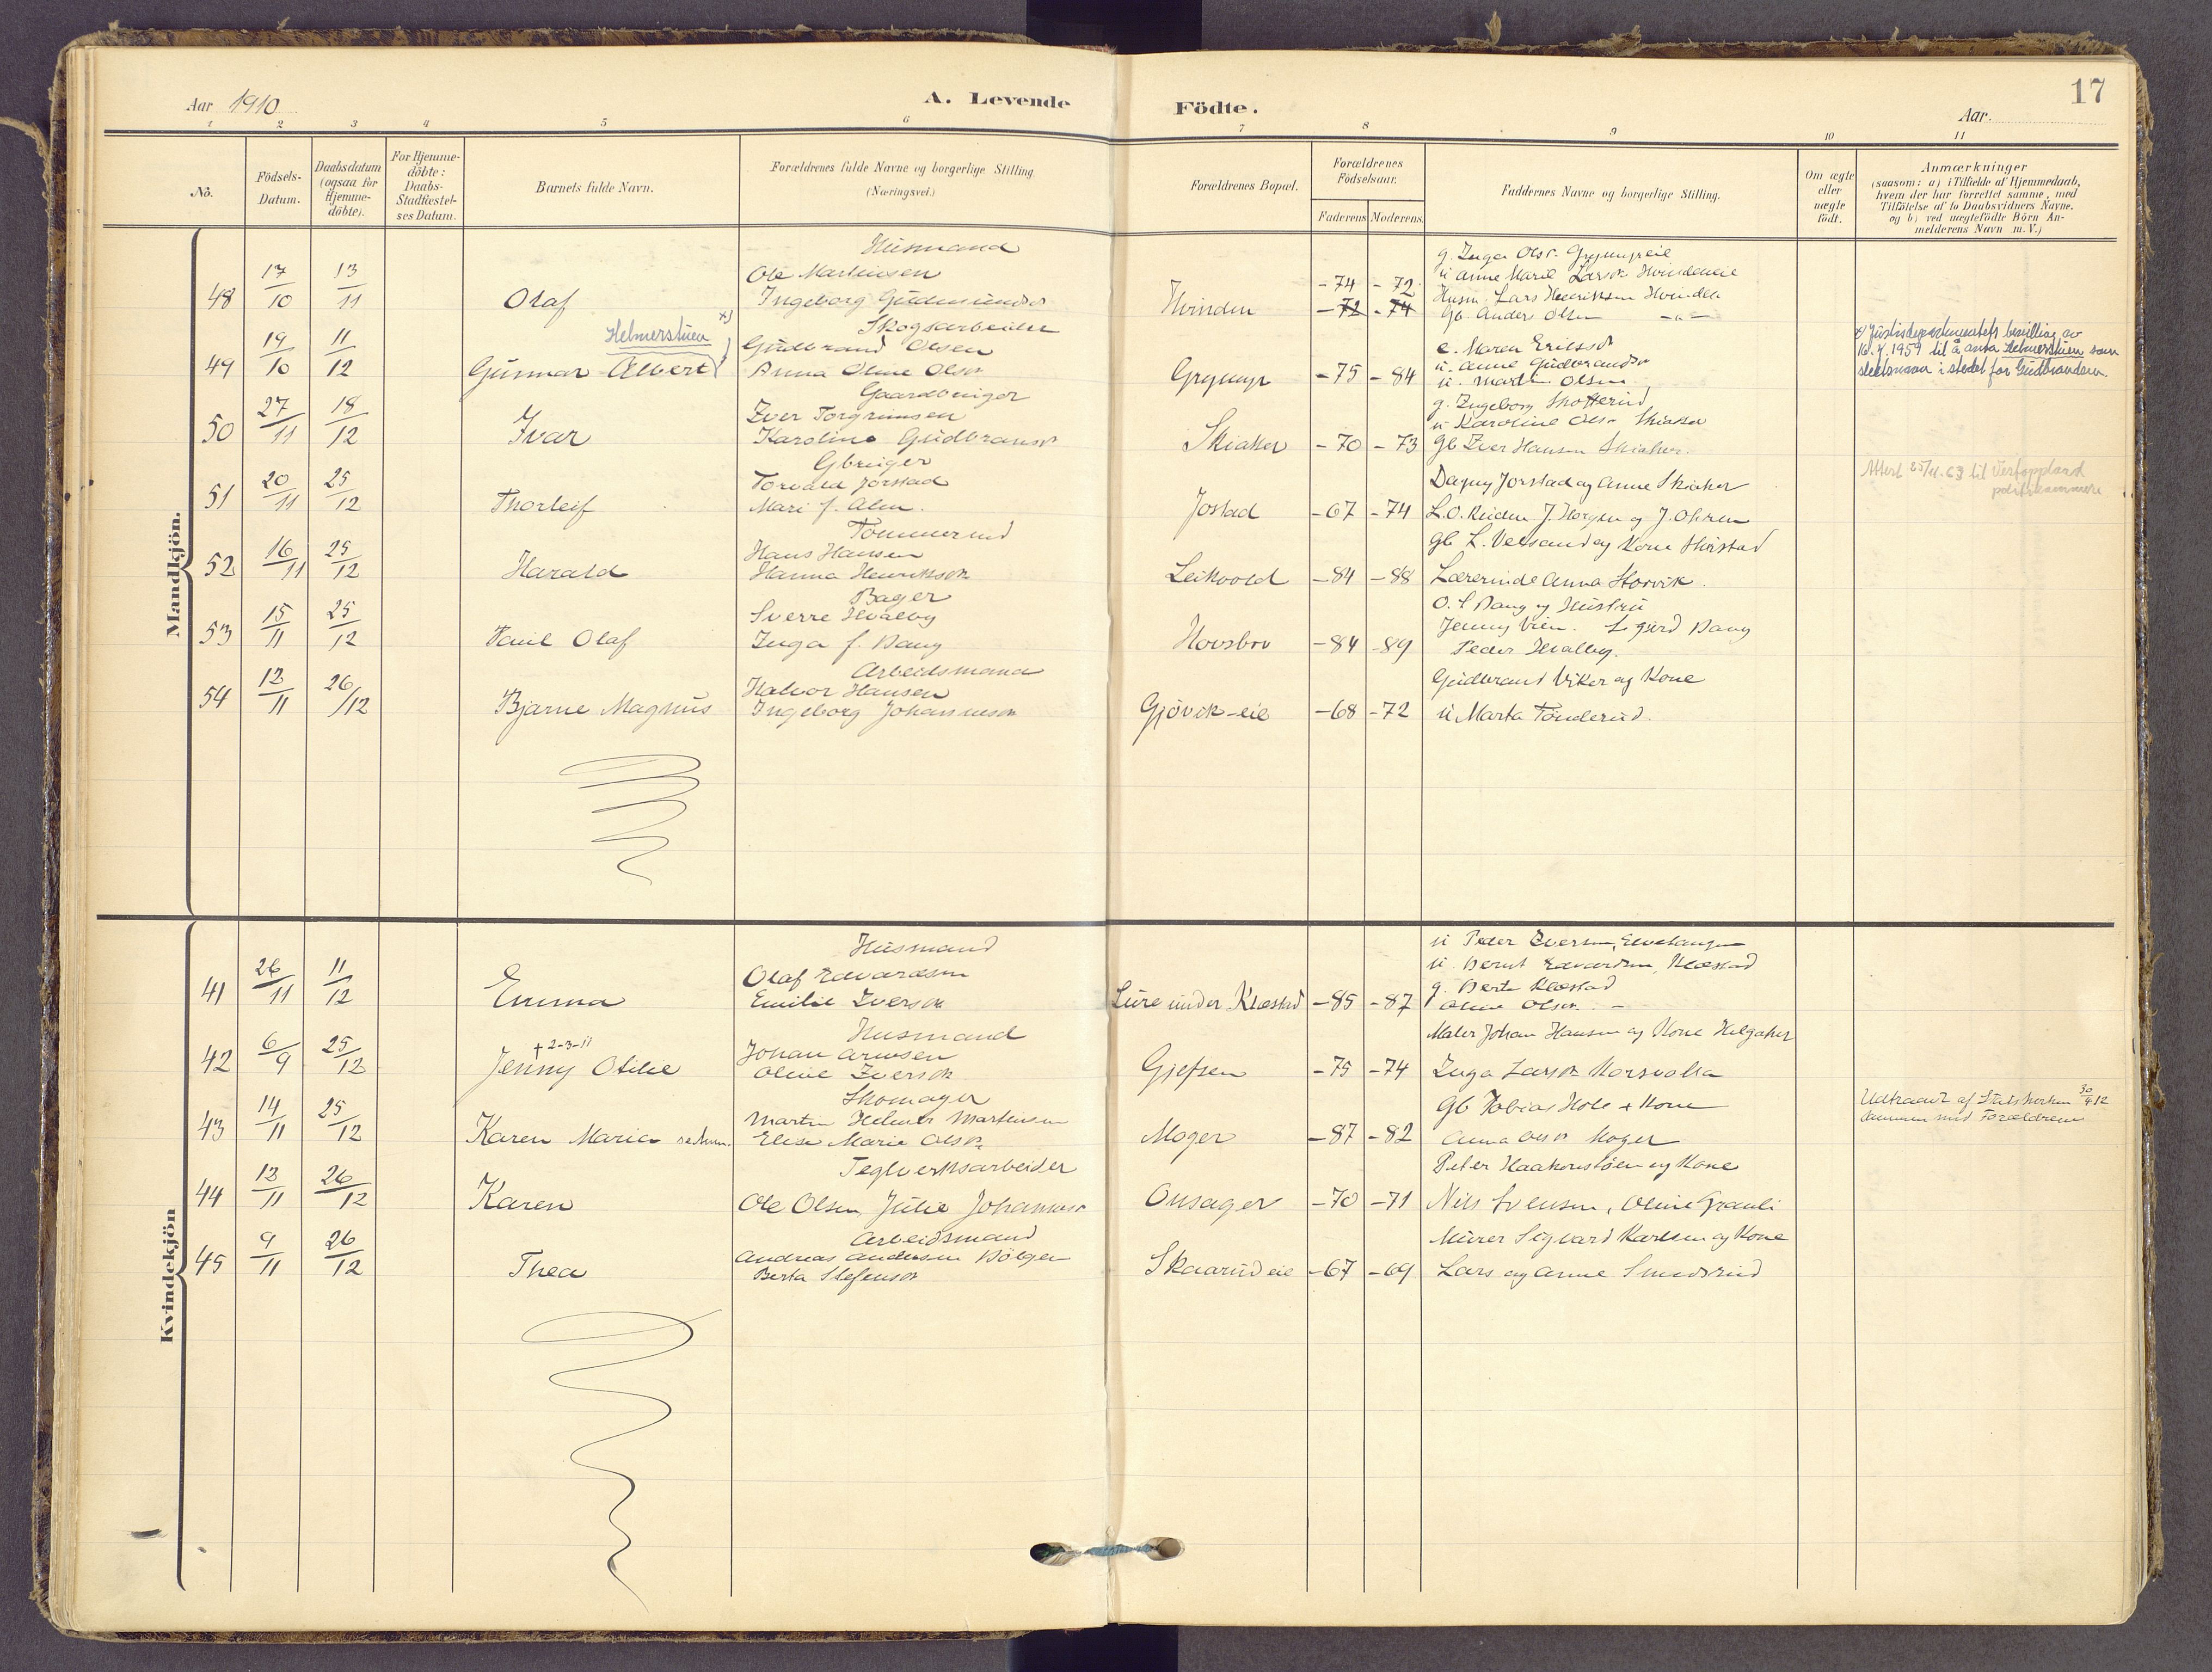 17
Aar 1910
A. Levende Födte.
Aar.
1 2 3 4 5 6 7 8 9 10 11
No.
Födsels-Datum.
Daabsdatum (ogsaa for Hjemme-döbte).
For Hjemme-döbte: Daabs-Stadfæstel-ses Datum.
Barnets fulde Navn.
Forældrenes fulde Navne og borgerlige Stilling (Næringsvei.)
Forældrenes Bopæl.
Forældrenes Födselsaar.
Faderens Moderens
Faddernes Navne og borgerlige Stilling.
Om ægte eller uægte födt.
Anmærkninger
(saasom: a) i Tilfælde af Hjemmedaab,
hvem der har forrettet samme, med
Tilföielse af to Daabsvidners Navne.
og b) ved uægtefödte Börn An-
melderens Navn m.V.)
Mandkjön.
Husmand
48 17/10 13/11 Olaf
Ole Martinsen
Ingeborg Gudmundsd
Hvinden -74 -72
-72 -74
g. Inga Olsd. Grymyreie
u Anne Marie Larsd. Hvindeneie
Husm. Lars Henriksen Hvinden
Gb. Anders Olsen -"-
Skogsarbeider
49 19/10 11/12 Gunnar Albert
Helmerstuen x)
Gudbrand Olsen
Anna Oline Olsd
Grymyr -75 -84
e. Maren Eriksd
u. Anne Gudbrandsd
u. Martin Olsen
x) Justisdepartementets bevilling av
16.4.1959 til å anta Helmerstuen som
slektsnavn i stedet for Gudbrandsen.
Gaardbruger
50 27/11 18/12 Ivar
Iver Torgrimsen
Karoline Gudbransd
Skiaker -70 -73
g. Ingeborg Skotterud
u Karoline Olsd Skiaker
gb Iver Hansen Skiaker.
Gbruger
51 20/11 25/12 Thorleif
Torvald Jorstad
Mari f. Alm.
Jostad -67 -74
Dagny Jorstad og Anne Skiaker
L.O. Ruden J. Horgen og J. Ohren
Attest 25/11-63 til Vestoppland
politikammer
Tömmermd
52 16/11 25/12 Harald
Hans Hansen
Hanna Henriksd
Leikvold -84 -88
gb L. Velsand og Kone
Lærerinde Anna Storvik.
Bager
53 15/11 25/12 Paul Olaf
Sverre Hvalby
Inga f. Dang
Hovsbro -84 -89
Jenny Vien.
Peder Hvalby.
Arbeidsmand
54 13/11 26/12 Bjarne Magnus
Halvor Hansen
Ingeborg Johannesd
Gjövik-eie -68 -72
Gudbrand Viker og Kone
u Marta Tönderud.
Kvindekjön
Husmand
41 26/11 11/12 Emma
Olaf Edvardsen
Emilie Iversd
Lure under Klæstad -85 -87
u Peder Iversen, Elvetangen
u. Bernt Edvardsen, Klæstad
g. Berte Klæstad
Oline Olsd. -
Husmand
42 6/9 25/12 Jenny Otilie
+ 2-3-11
Johan Arnesen
Oline Iversd
Gjefsen -75 -74
Maler Johan Hansen og Kone Helgaker
Inga Larsd. Korsvolla
Skomager
43 14/11 25/12 Karen Maria
Martin Helmer Martinsen
Elise Marie Olsd.
Moger -87 -82
Gb Tobias Hole + Kone
Anna Olsd Moger
Udtraadt af Statskirken 30/4 12
sammen med Forældrene
Teglverksarbeider
44 13/11 26/12 Karen
Ole Olsen Julie Johannesd
Onsager -70 -71
Peter Haakenstöen og Kone
Nils Svensen, Oline Grauli
Arbeidsmand
45 9/11 26/12 Thea
Andreas Andersen Bölgen
Berta Stefensd
Skaarud eie -67 -69
Murer Sigvard Karlsen og Kone
Lars og Anne Smedsrud